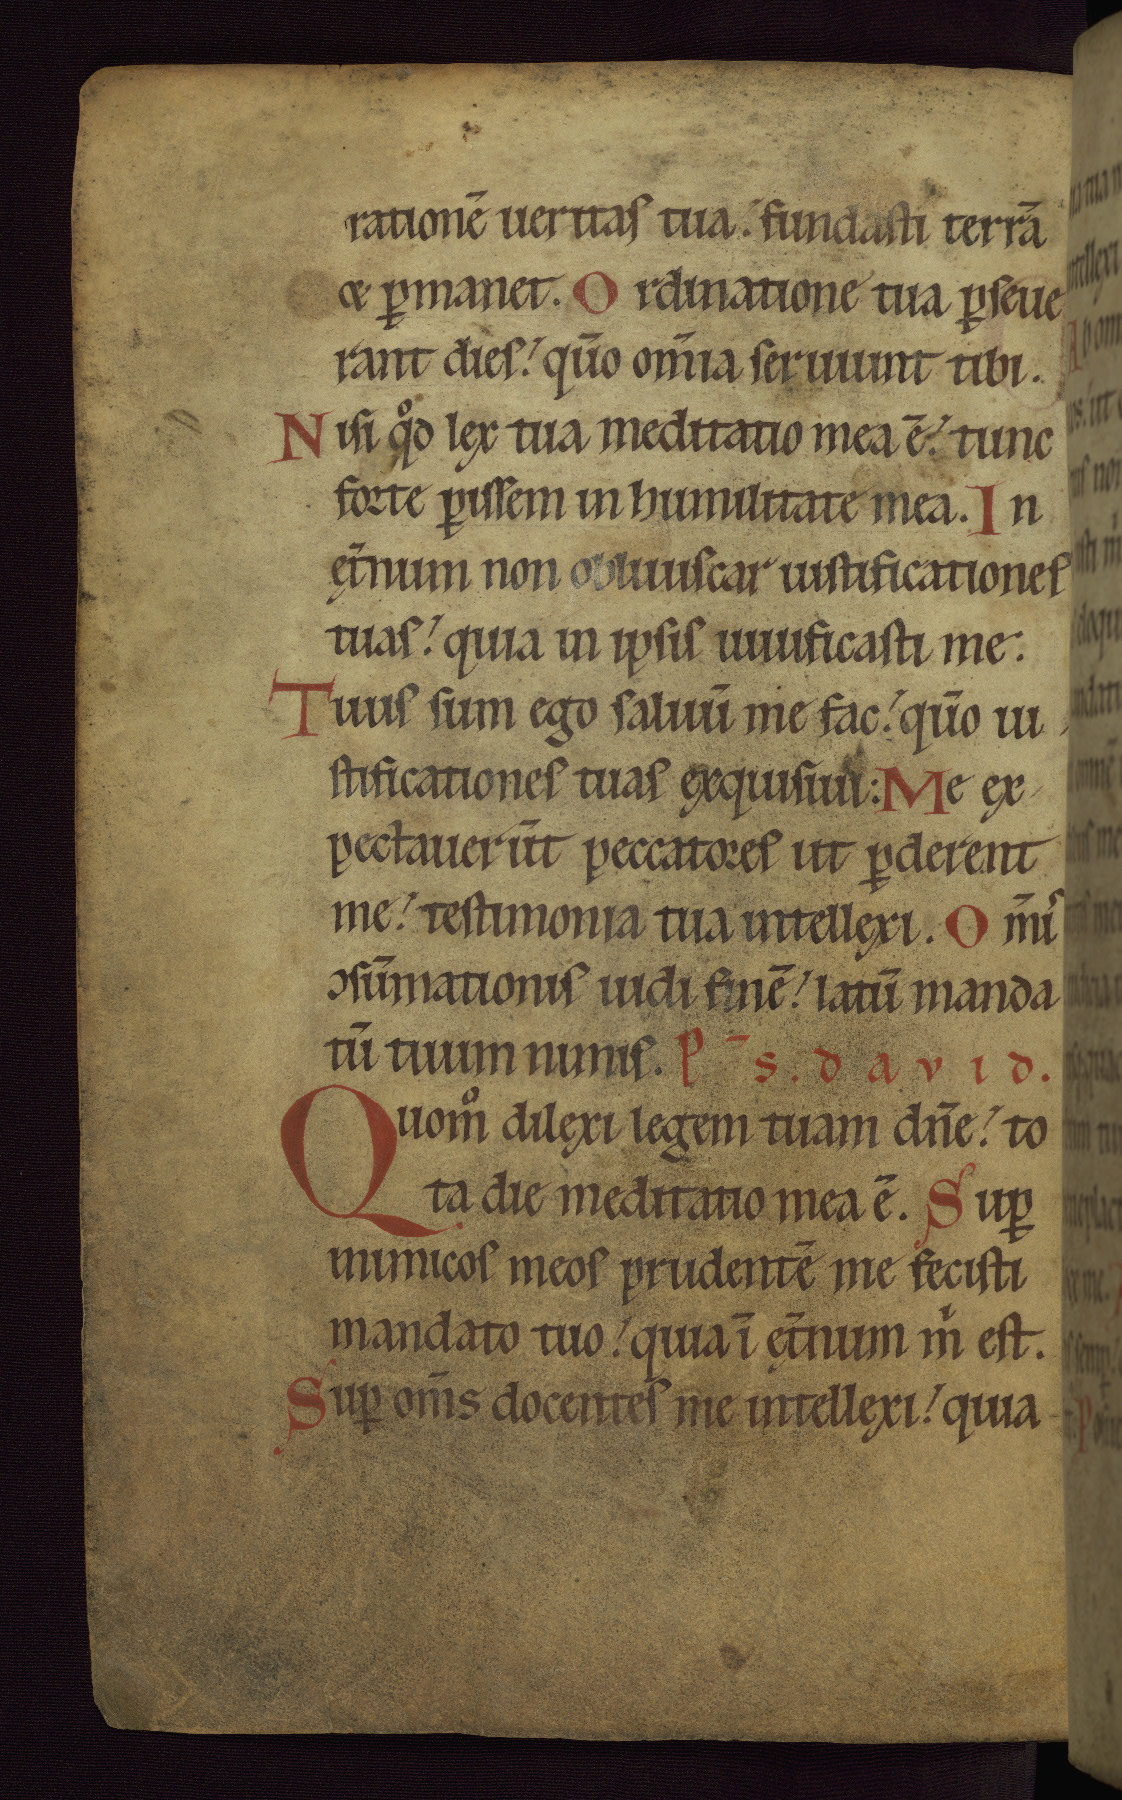 rationē ueritas tua. fundasti terrā
& ꝑmanet. Ordinatione tua ꝑseue
rant dies. quō om̄ia seruiunt tibi.
Nisi qͦd lex tua meditatio mea ē. tunc
forte ꝑissem in humilitate mea. In
et̄num non obliuiscar iustificationes
tuas. quia in ipsis uiuificasti me.
Tuus sum ego saluū me fac. quō iu
stificationes tuas exquisiui. Me ex
pectauerūt peccatores ut ꝑderent
me. testimonia tua intellexi. Om̄is
ꝯsūmationis uidi finē. latū manda
tū tuum nimis. P̄s. david.
Quom̊ dilexi legem tuam dn̄e. to
ta die meditatio mea ē. Suꝑ
inimicos meos prudentē me fecisti
mandato tuo. quia ī et̄num m̍ est.
Suꝑ om̄s docentes me intellexi. quia